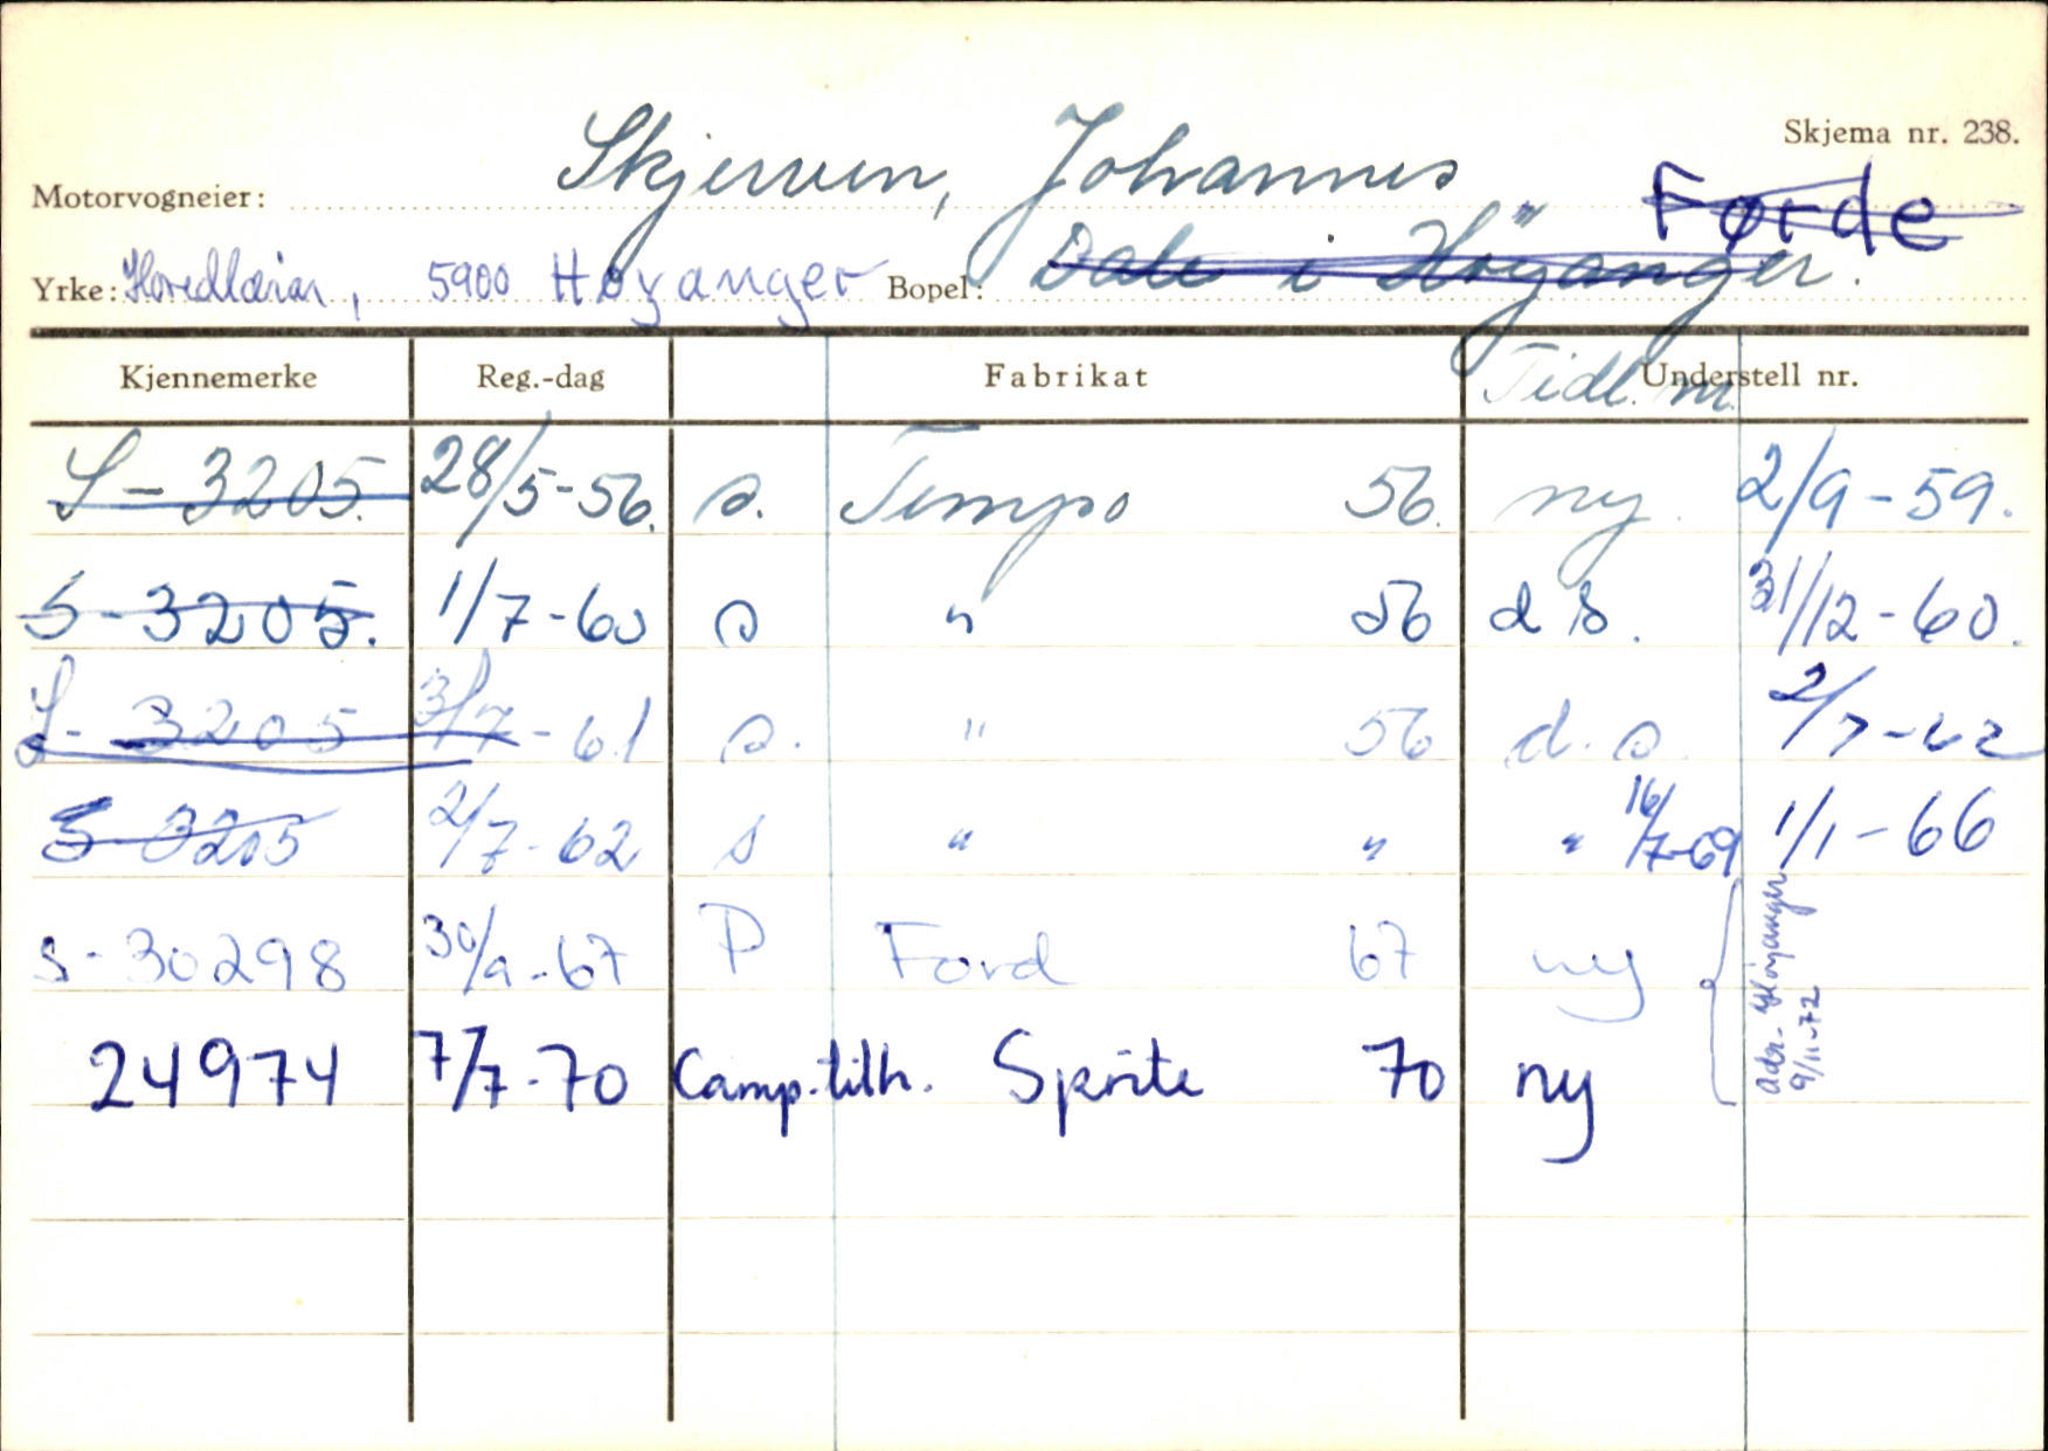 Skjema nr. 238.
Motorvogneier: Skjerven, Johannes
Førde
Yrke: Hovedlærar, 5900 Høyanger Bopel: Dale i Höyanger.
Kjennemerke Reg.-dag Fabrikat Tidl. nr. Understell nr.
S-3205. 28/5-56. s. Tempo 56. ny. 2/9-59.
S-3205. 1/7-60 s " 56 d s. 31/12-60.
S-3205 3/7-61 s. " 56 d.s. 2/7-62
S 3205 2/7-62 s " " " 16/7-69 1/1-66
S-30298 30/9-67 P Ford 67 ny
24974 7/7-70 Camp.tilh. Sprite 70 ny
adr. Høyanger
9/11-72